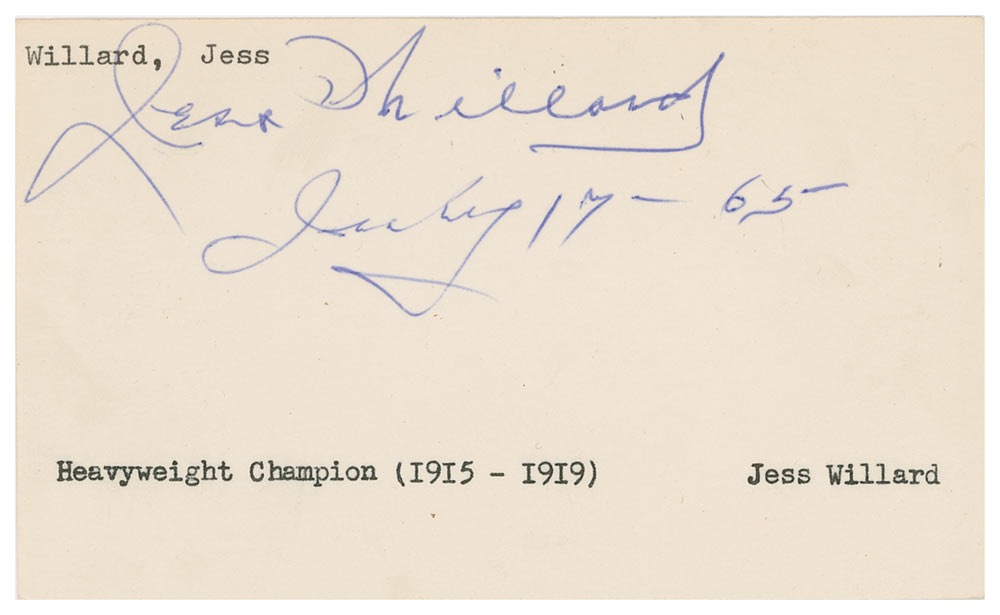 Willard, Jess
Jess Willard
July 17 - 65
Heavyweight Champion (1915 - 1919) Jess Willard